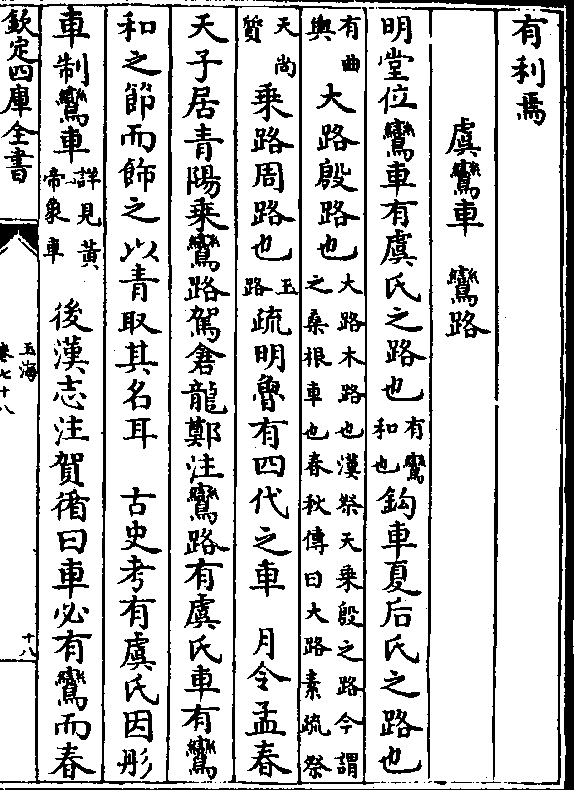 有利焉
虞鸞車　鸞路
明堂位鸞車有虞氏之路也有鸞和也鈎車夏后氏之路也
有曲輿大路殷路也大路木路也漢祭天乗殷之路今謂之桑根車也春秋傳曰大路素疏祭
天尚質乗路周路也玉路疏明魯有四代之車　月令孟春
天子居青陽乗鸞路駕倉龍鄭注鸞路有虞氏車有鸞
和之節而飾之以青取其名耳　古史考有虞氏因彤
車制鸞車詳見黃帝象車　後漢志注賀循曰車必有鸞而春
欽定四庫全書
玉海
卷七十八
十八